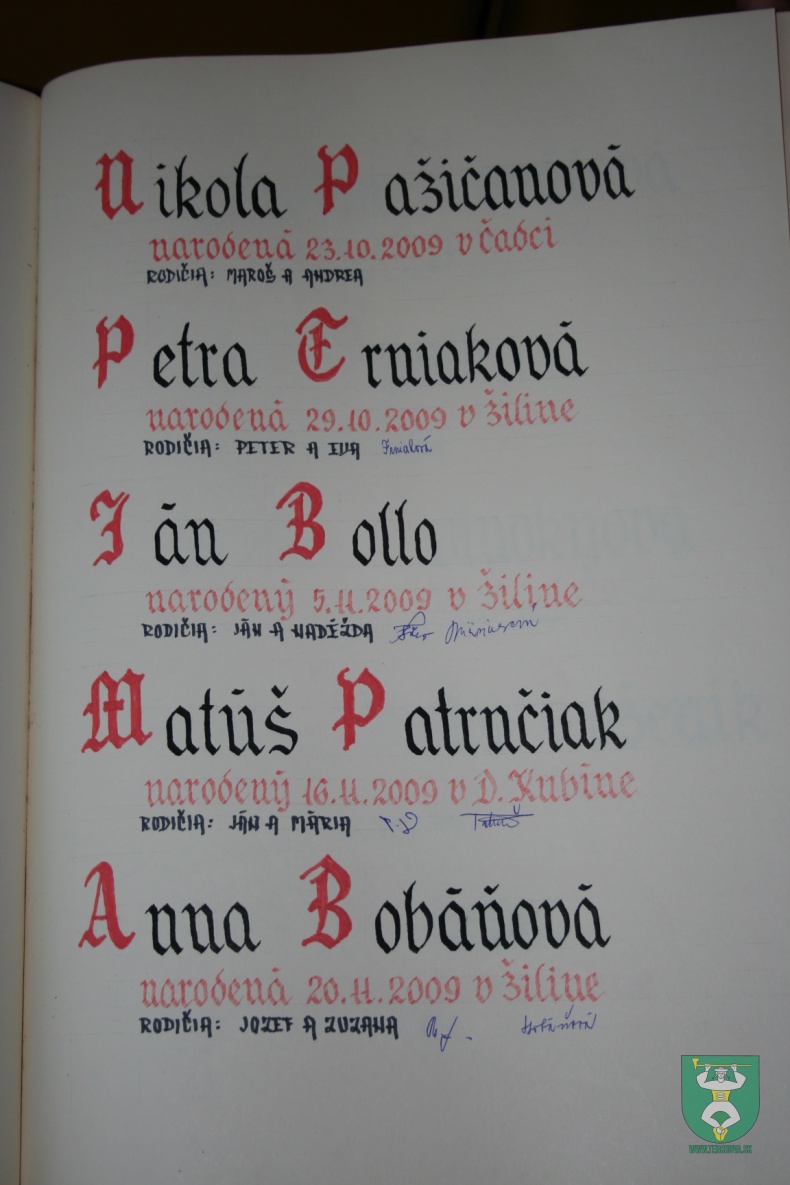 Nikola Pažičanová
narodená 23.10.2009 v Čadci
RODIČIA: MAROŠ A ANDREA
Petra Trniaková
narodená 29.10.2009 v Žiline
RODIČIA: PETER A EVA
Ján Bollo
narodený 5.11.2009 v Žiline
RODIČIA: JÁN A NADĚŽDA
Matúš Patrnčiak
narodený 16.11.2009 v D. Kubíne
RODIČIA: JÁN A MÁRIA
Anna Bobáňová
narodená 20.11.2009 v Žiline
RODIČIA: JOZEF A ZUZANA
WWW.TERCHOVA.SK